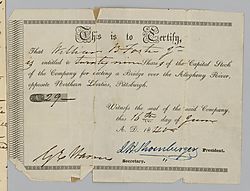 This is to Certify,
That William B Foster Jr
is entitled to twenty nine Shares of the Capital Stock
of the Company for erecting a Bridge over the Alleghany River,
opposite Northern Liberties, Pittsburgh.
29
Witness the seal of the said Company,
this 16th day of June
A. D. 184
President.
Secretary.